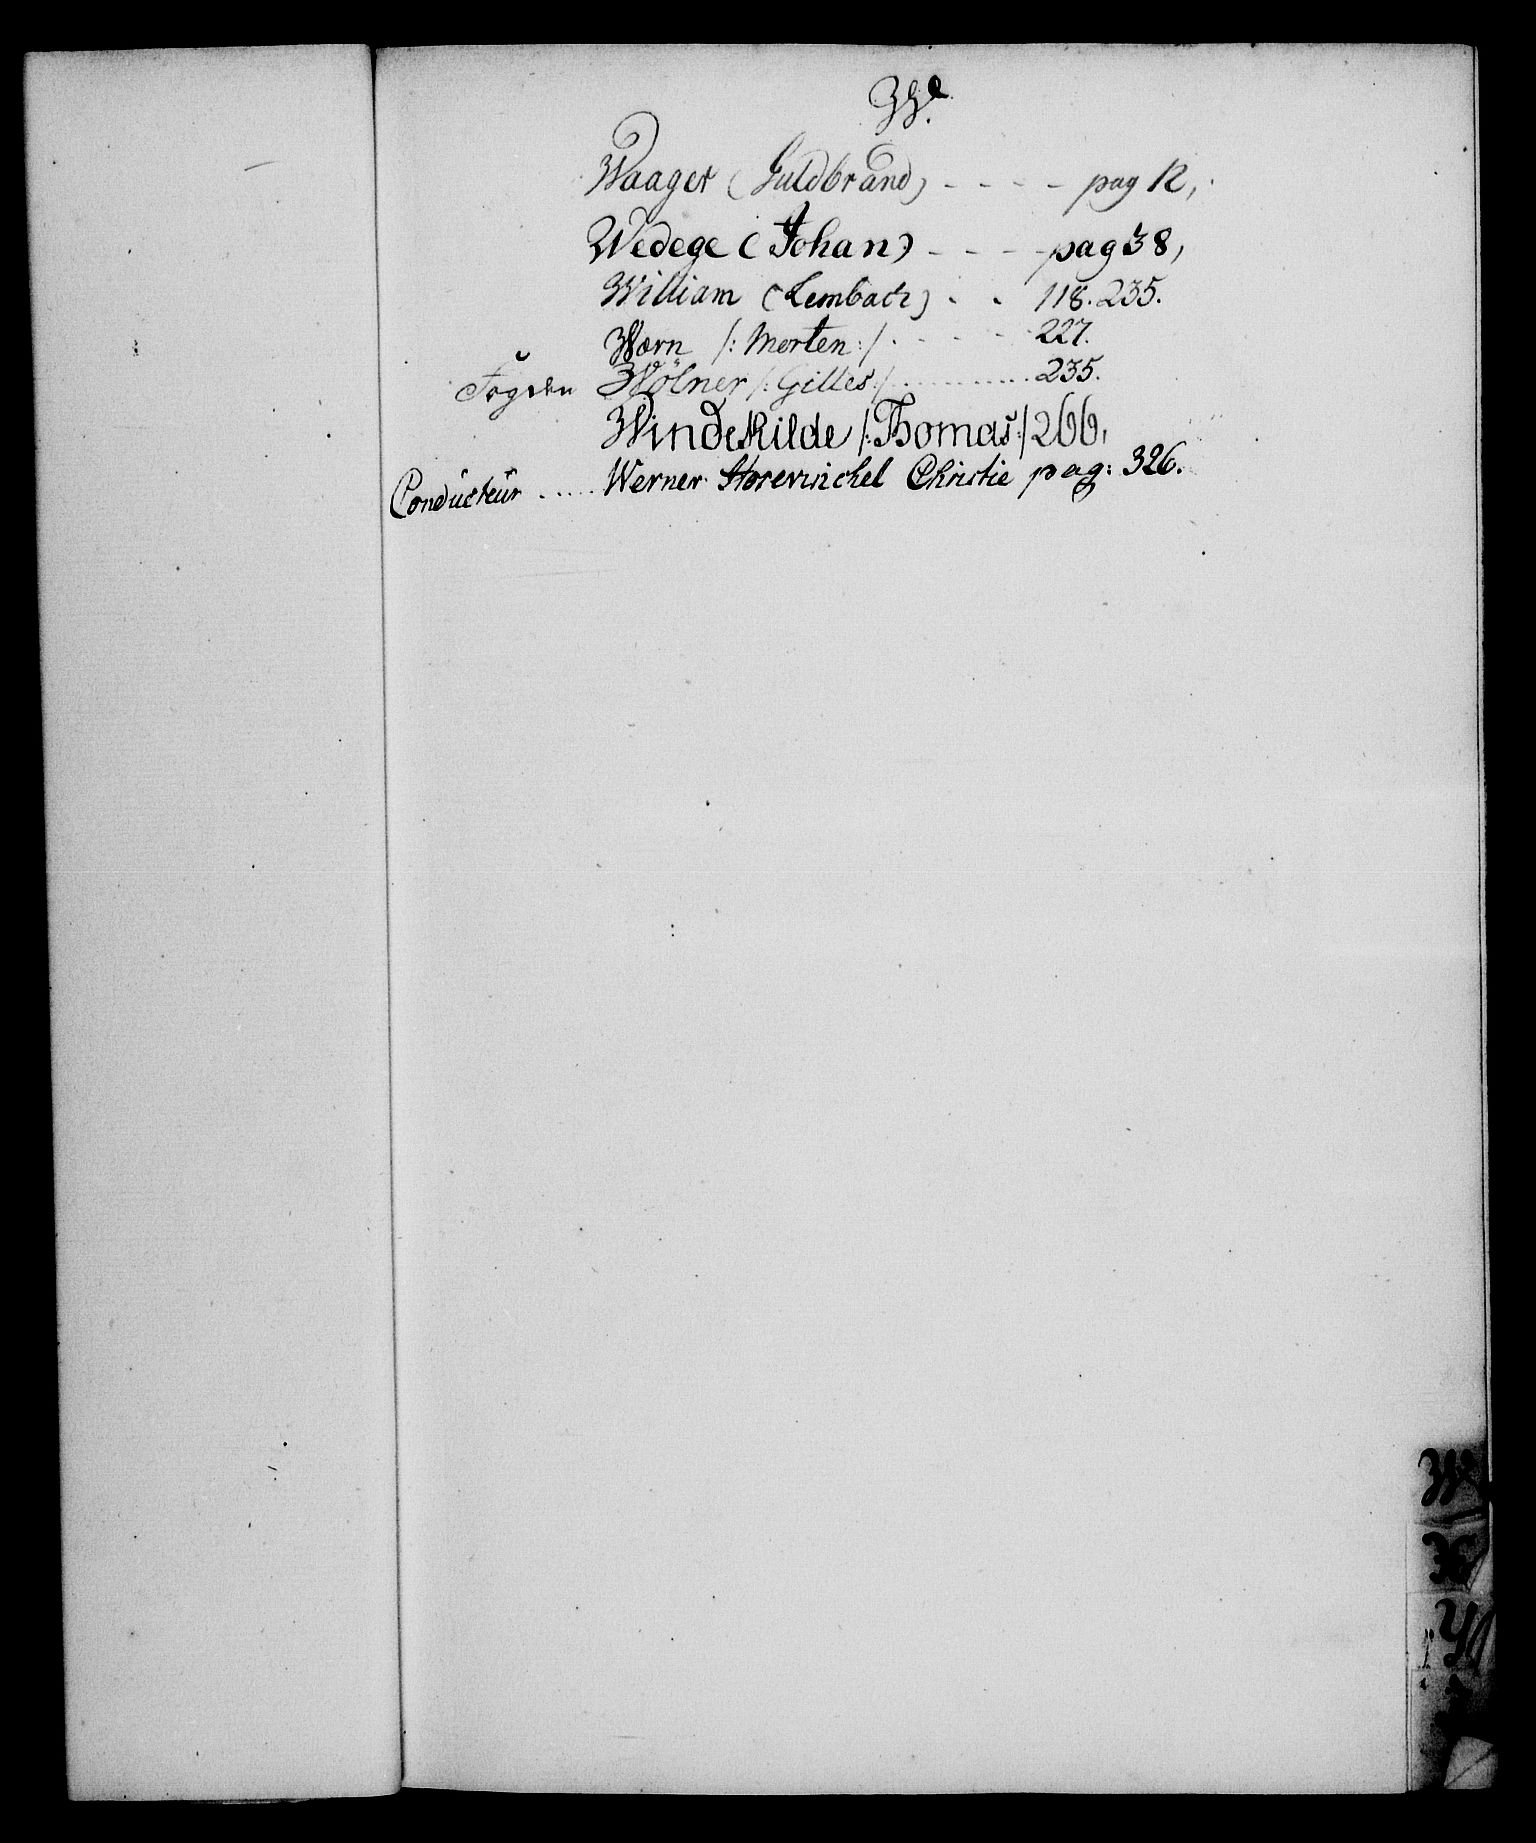 W.
Waager (Guldbrand) - - - - pag 12,
Wedege (Johan) - - - - pag 38,
William (Lembach) - - 118. 235.
Wærn /: Morten :/ - - - - 227.
Fogden Wölner /: Gilles :/ ............ 235.
Windekilde /: Thomas :/ 266,
Conducteur ..... Werner Hosewinckel Christie pag: 326.
W
X
Y